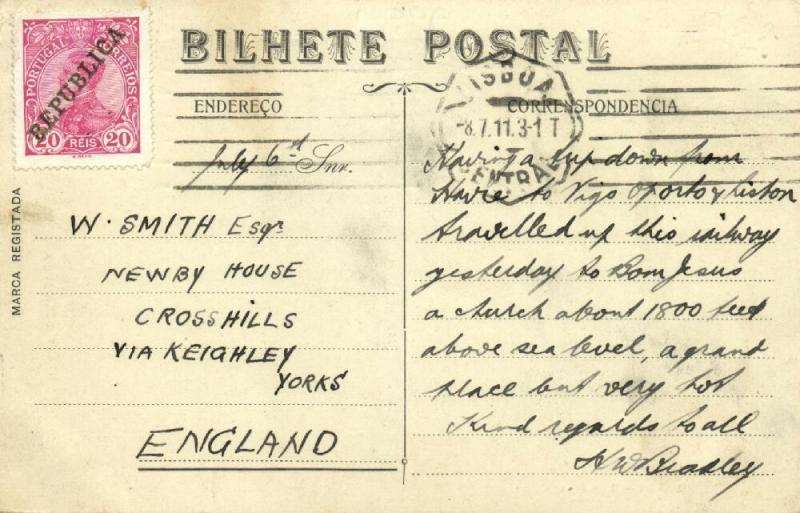 BILHETE POSTAL
PORTUGAL CORREIOS
REPUBLICA
20 REIS 20
ENDEREÇO
CORRENSPONDENCIA
LISBOA
-8.7.11.3-1 T
CENTRAL
MARCA REGISTADA
July 6st Snr.
W. SMITH Esqr
NEWBY HOUSE
CROSSHILLS
VIA KEIGHLEY
YORKS
ENGLAND
Having a trip down from
Havre to Vigo Oporto & Lisbon
travelled up this railway
yesterday to Bom Jesus
a church about 1800 feet
above sea level, a grand
place but very hot
Kind regards to all
H W Bradley